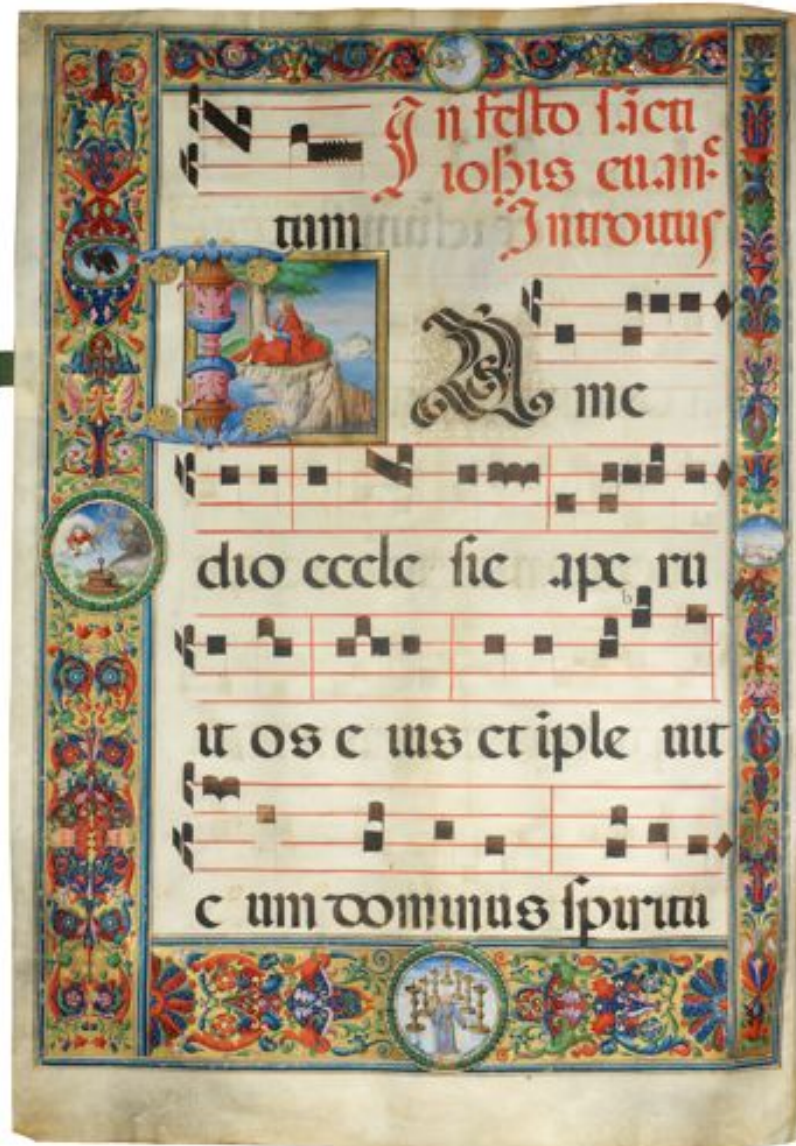 In festo sãcti
iohis euanᶜ
tum Introitus
IN me
dio eccle sie ape ru
it os e ius et iple uit
e um dominus spiritu